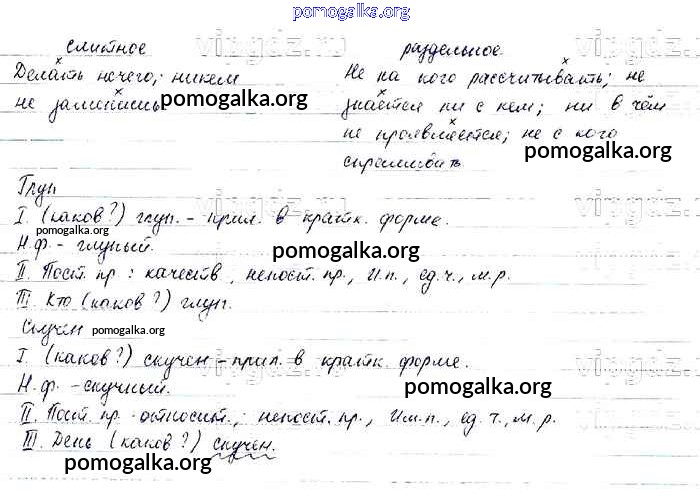 pomogalka.org
слитное раздельное
Делать нечего; никем Не на кого рассчитывать; не
не заменишь pomogalka.org знается ни с кем; ни в чём
не проявляется; не с кого
pomogalka.org
спрашивать
Глуп
I. (каков?) глуп. - прил. в кратк. форме.
pomogalka.org
Н.ф. - глупый. pomogalka.org
II. Пост. пр.: качеств, непост. пр., И.п., ед.ч., м.р.
III. Кто (каков?) глуп.
Скучен pomogalka.org
I. (каков?) скучен - прил. в кратк. форме.
Н.ф. - скучный. pomogalka.org
II. Пост. пр. - относит.; непост. пр., Им.п., ед.ч., м.р.
III. День (каков?) скучен.
pomogalka.org
vipgdz.ru